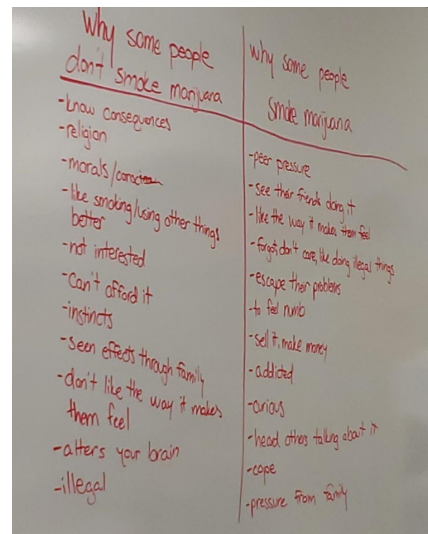 Why some people
don't smoke marijuana
-know consequences
-religion
-morals/
-like smoking/using other things
better
-not interested
-Can't afford it
-instincts
-seen effects through family
-don't like the way it makes
them feel
-alters your brain
-illegal
Why some people
smoke marijuana
-peer pressure
-see their friends doing it
-like the way it makes them feel
-forgot, don't care, like doing illegal things
-escape their problems
-to feel numb
-sell it, make money
-addicted
-curious
-head others talking about it
-cope
-pressure from family